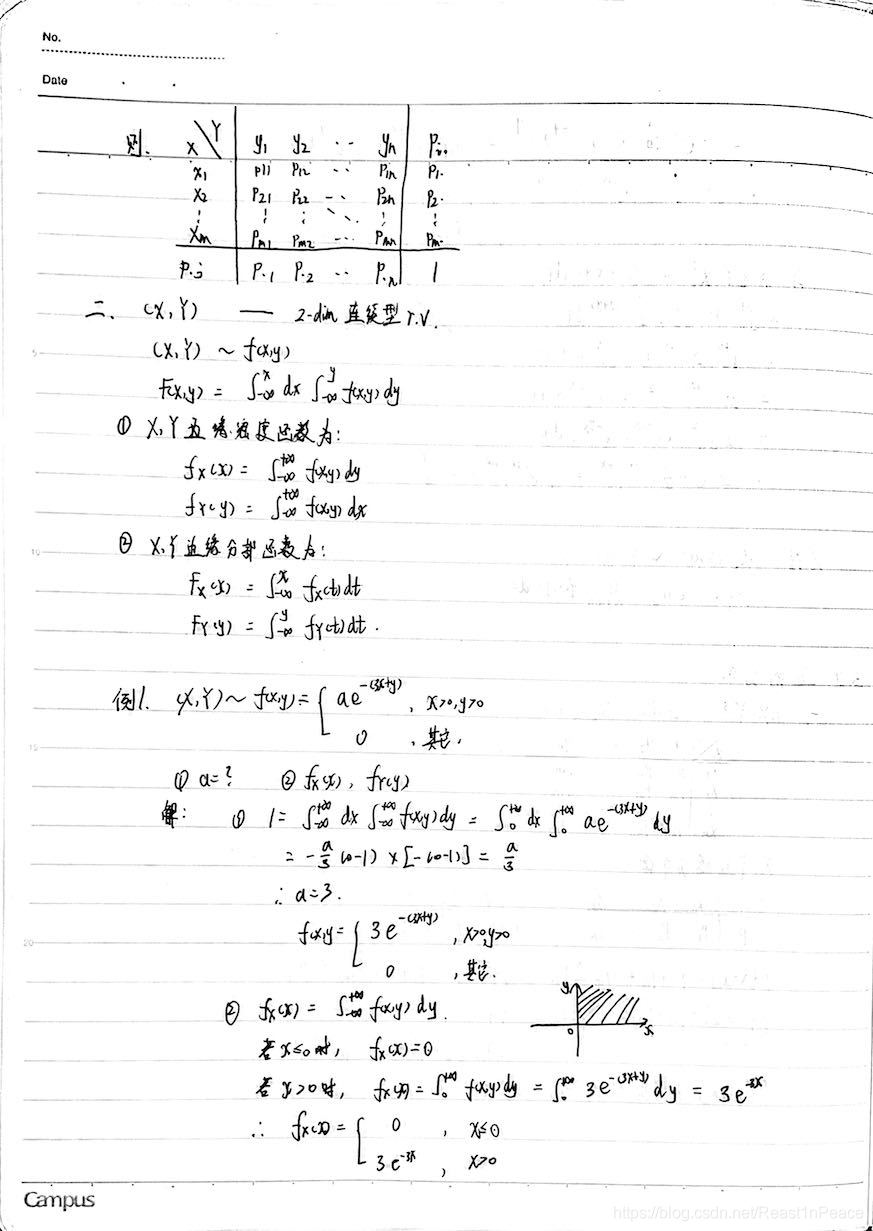 No.
Date
则. X\Y y₁ y₂ ·· yₙ Pᵢ.
x₁ p₁₁ p₁₂ ·· p₁ₙ p₁.
x₂ p₂₁ p₂₂ ·· p₂ₙ p₂.
⋮ ⋮ ⋮ ⋱ ⋮ ⋮
xₘ pₘ₁ pₘ₂ ··· pₘₙ pₘ.
P.j P.₁ P.₂ ·· P.ₙ 1
二. (X,Y) — 2-dim 连续型 r.v.
(X,Y) ~ f(x,y)
F(x,y) = ∫_{-∞}^{x} dx ∫_{-∞}^{y} f(x,y) dy
① X,Y 边缘密度函数为:
f_X(x) = ∫_{-∞}^{+∞} f(x,y) dy
f_Y(y) = ∫_{-∞}^{+∞} f(x,y) dx
② X,Y 边缘分布函数为:
F_X(x) = ∫_{-∞}^{x} f_X(t) dt
F_Y(y) = ∫_{-∞}^{y} f_Y(t) dt.
例1. (X,Y) ~ f(x,y) = { ae^{-(3x+y)}, x>0,y>0
0, 其它.
① a=? ② f_X(x), f_Y(y)
解: ① 1 = ∫_{-∞}^{+∞} dx ∫_{-∞}^{+∞} f(x,y) dy = ∫_0^{+∞} dx ∫_0^{+∞} ae^{-(3x+y)} dy
= -a/3 (0-1) × [-(0-1)] = a/3
∴ a=3.
f(x,y) = { 3e^{-(3x+y)}, x>0,y>0
0, 其它.
② f_X(x) = ∫_{-∞}^{+∞} f(x,y) dy.
y
0 x
若 x≤0 时, f_X(x)=0
若 x>0 时, f_X(x) = ∫_0^{+∞} f(x,y) dy = ∫_0^{+∞} 3e^{-(3x+y)} dy = 3e^{-3x}
∴ f_X(x) = { 0, x≤0
3e^{-3x}, x>0
Campus
https://blog.csdn.net/Reast1nPeace